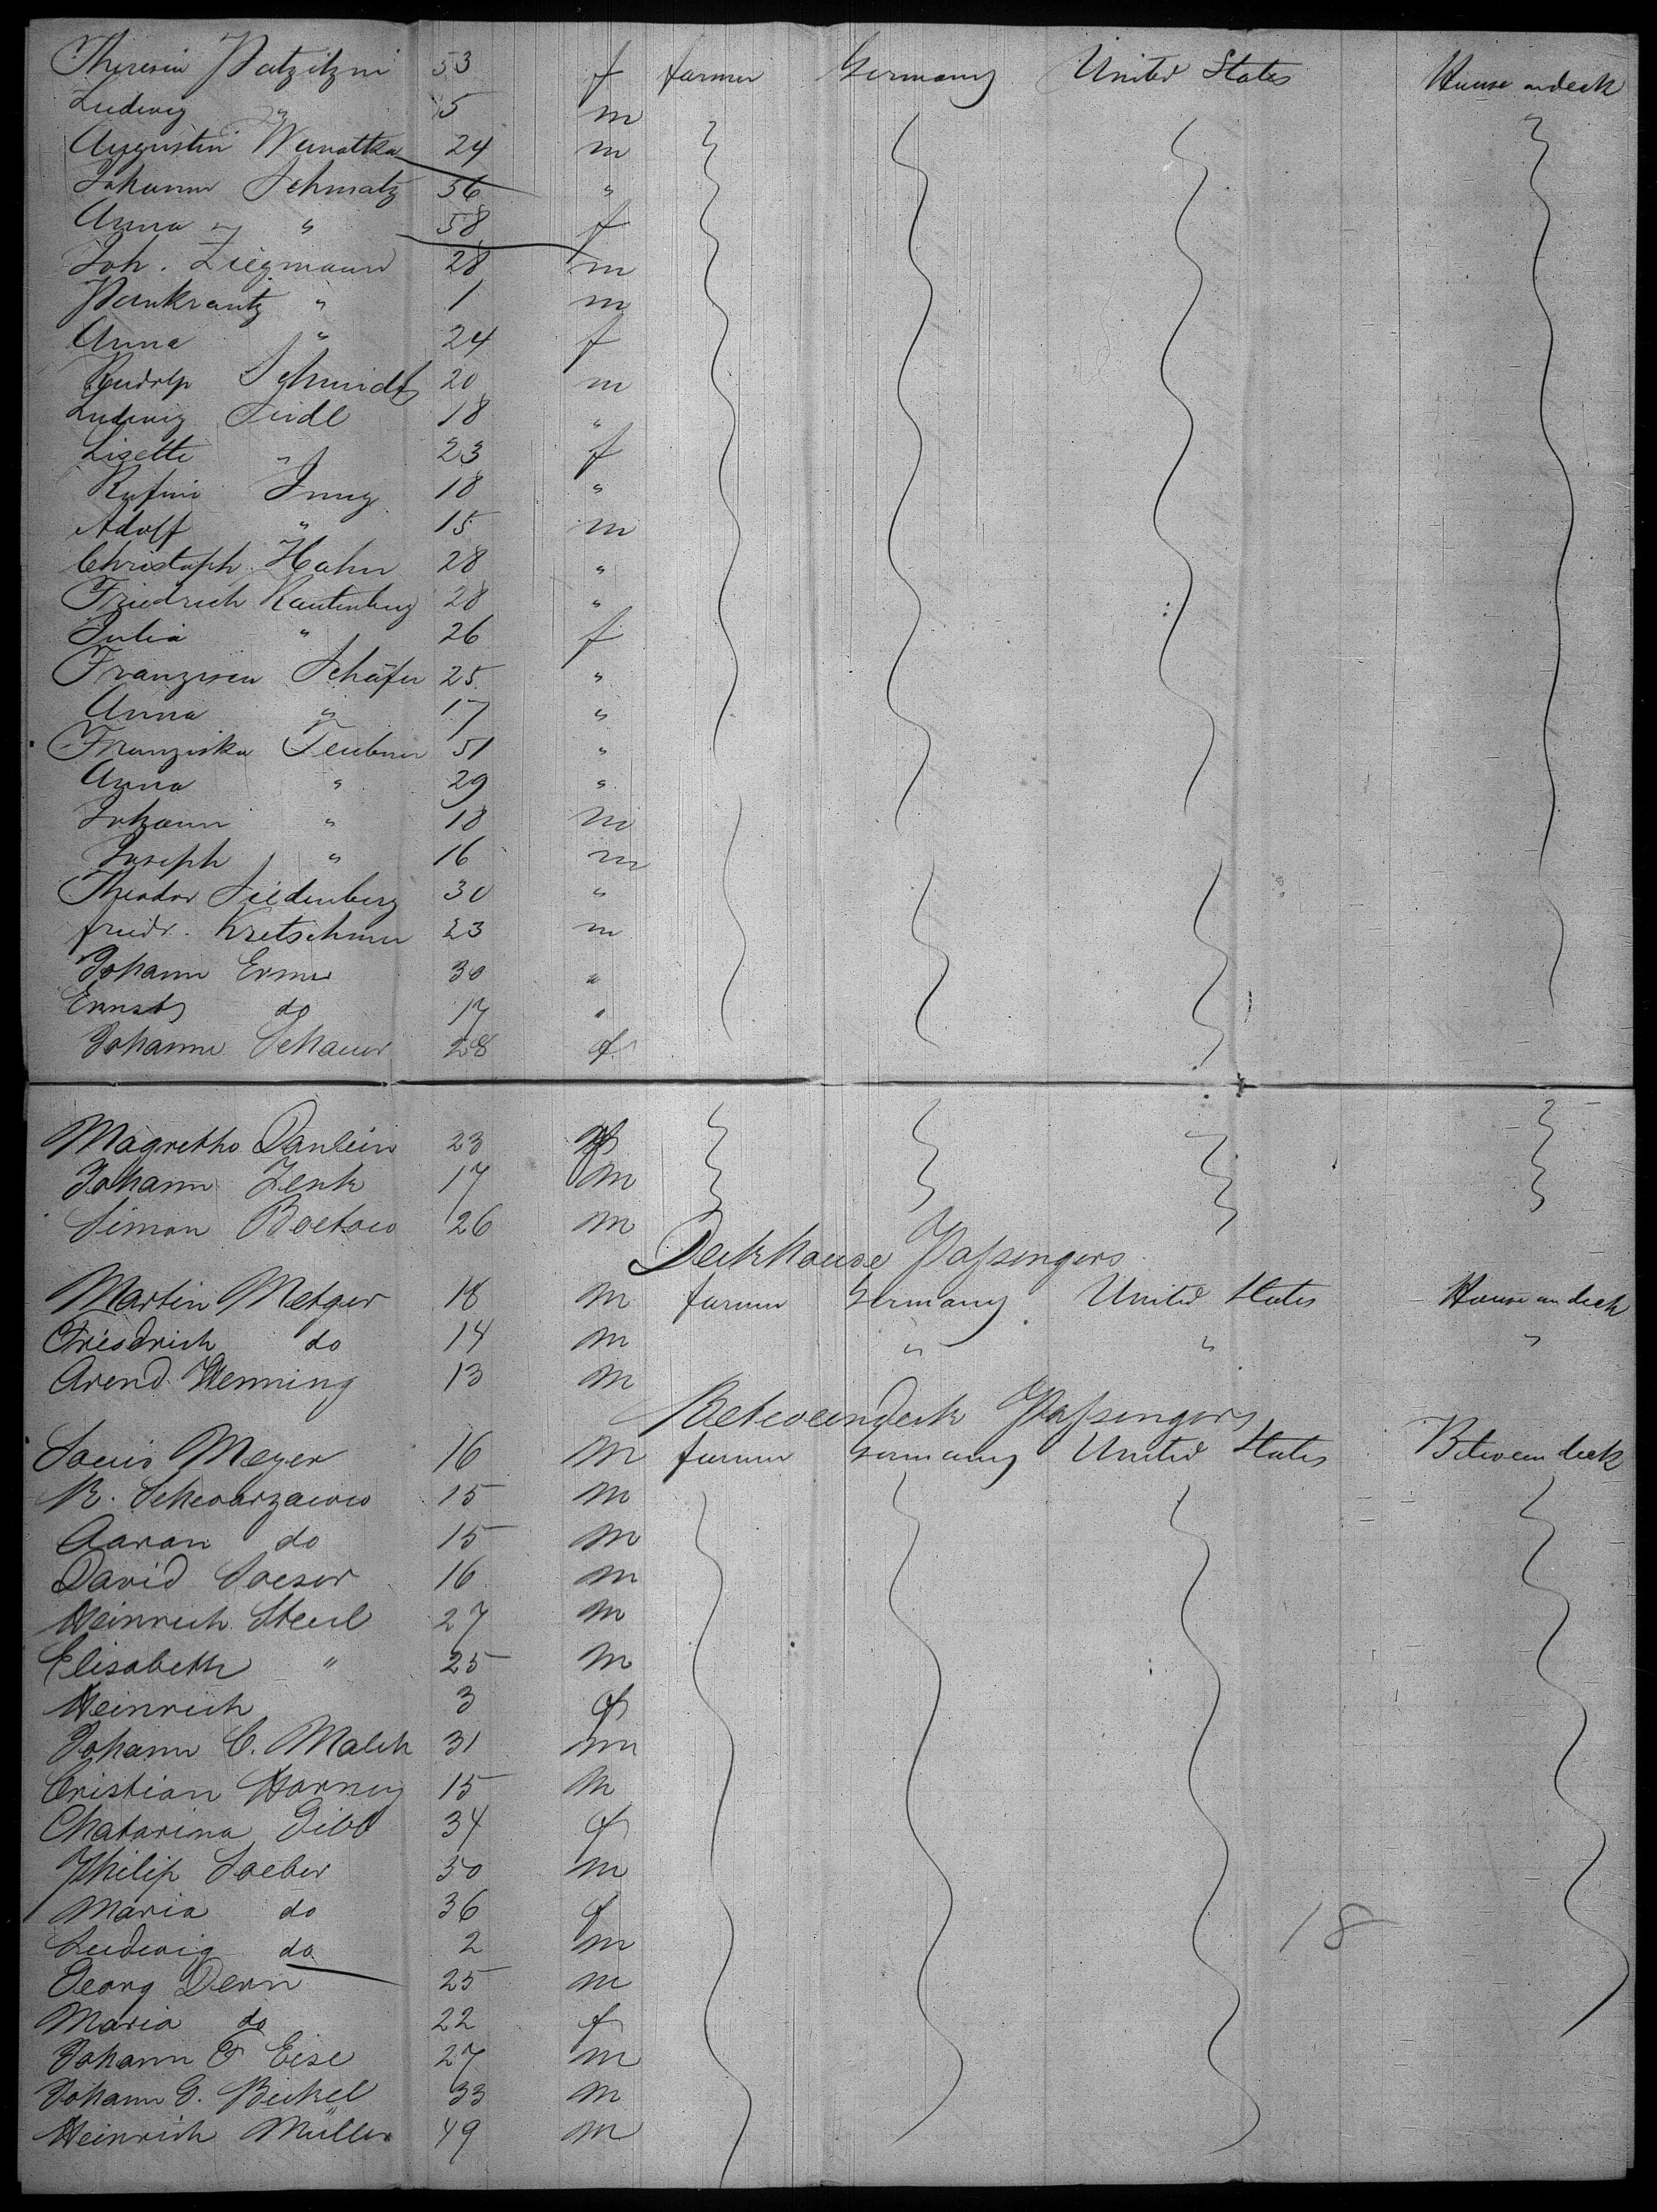 Theresia Patzitzni 53 f farmer Germany United States House on deck
Ludwig " 5 m
Augustin Wanattka 24 m
Johann Schmatz 56 "
Anna " 58 f
Joh. Ziegmann 28 m
Pankrantz " 1 m
Anna " 24 f
Rudolp Schmidt 20 m
Ludwig Seidl 18 "
Lisette " 23 f
Rufini Jung 18 "
Adolf " 15 m
Christoph Hahn 28 "
Friedrich Rautenberg 28 "
Julia " 26 f
Franzisca Schäfer 25 "
Anna " 17 "
Franziska Teubner 51 "
Anna " 29 "
Johann " 18 m
Joseph " 16 m
Theodor Siedenberg 30 "
friedr. Kretschmer 23 m
Johann Ermer 30 "
Ernst do 17 "
Johanne Schauer 28 f
Magretha Danlein 23 f
Johann Zenk 17 m
Simon 26 m
Deckhouse Passengers
Martin Metger 18 m farmer Germany United States House on deck
Friedrich do 14 m " " "
Arend Henning 13 m
Betweendeck Passengers
Louis Meyer 16 m farmer Germany United States Between deck
R. 15 m
Aaron do 15 m
David Loeser 16 m
Heinrich Steul 27 m
Elisabeth " 25 m
Heinrich 3 f
Johann C. Malch 31 m
Cristian Horney 15 m
Chatarina 34 f
Philip Loeber 50 m
Maria do 36 f
Ludwig do 2 m
Georg Dern 25 m
Maria do 22 f
Johann F Eise 27 m
Johann G. Bickel 33 m
Heinrich Müller 49 m
18